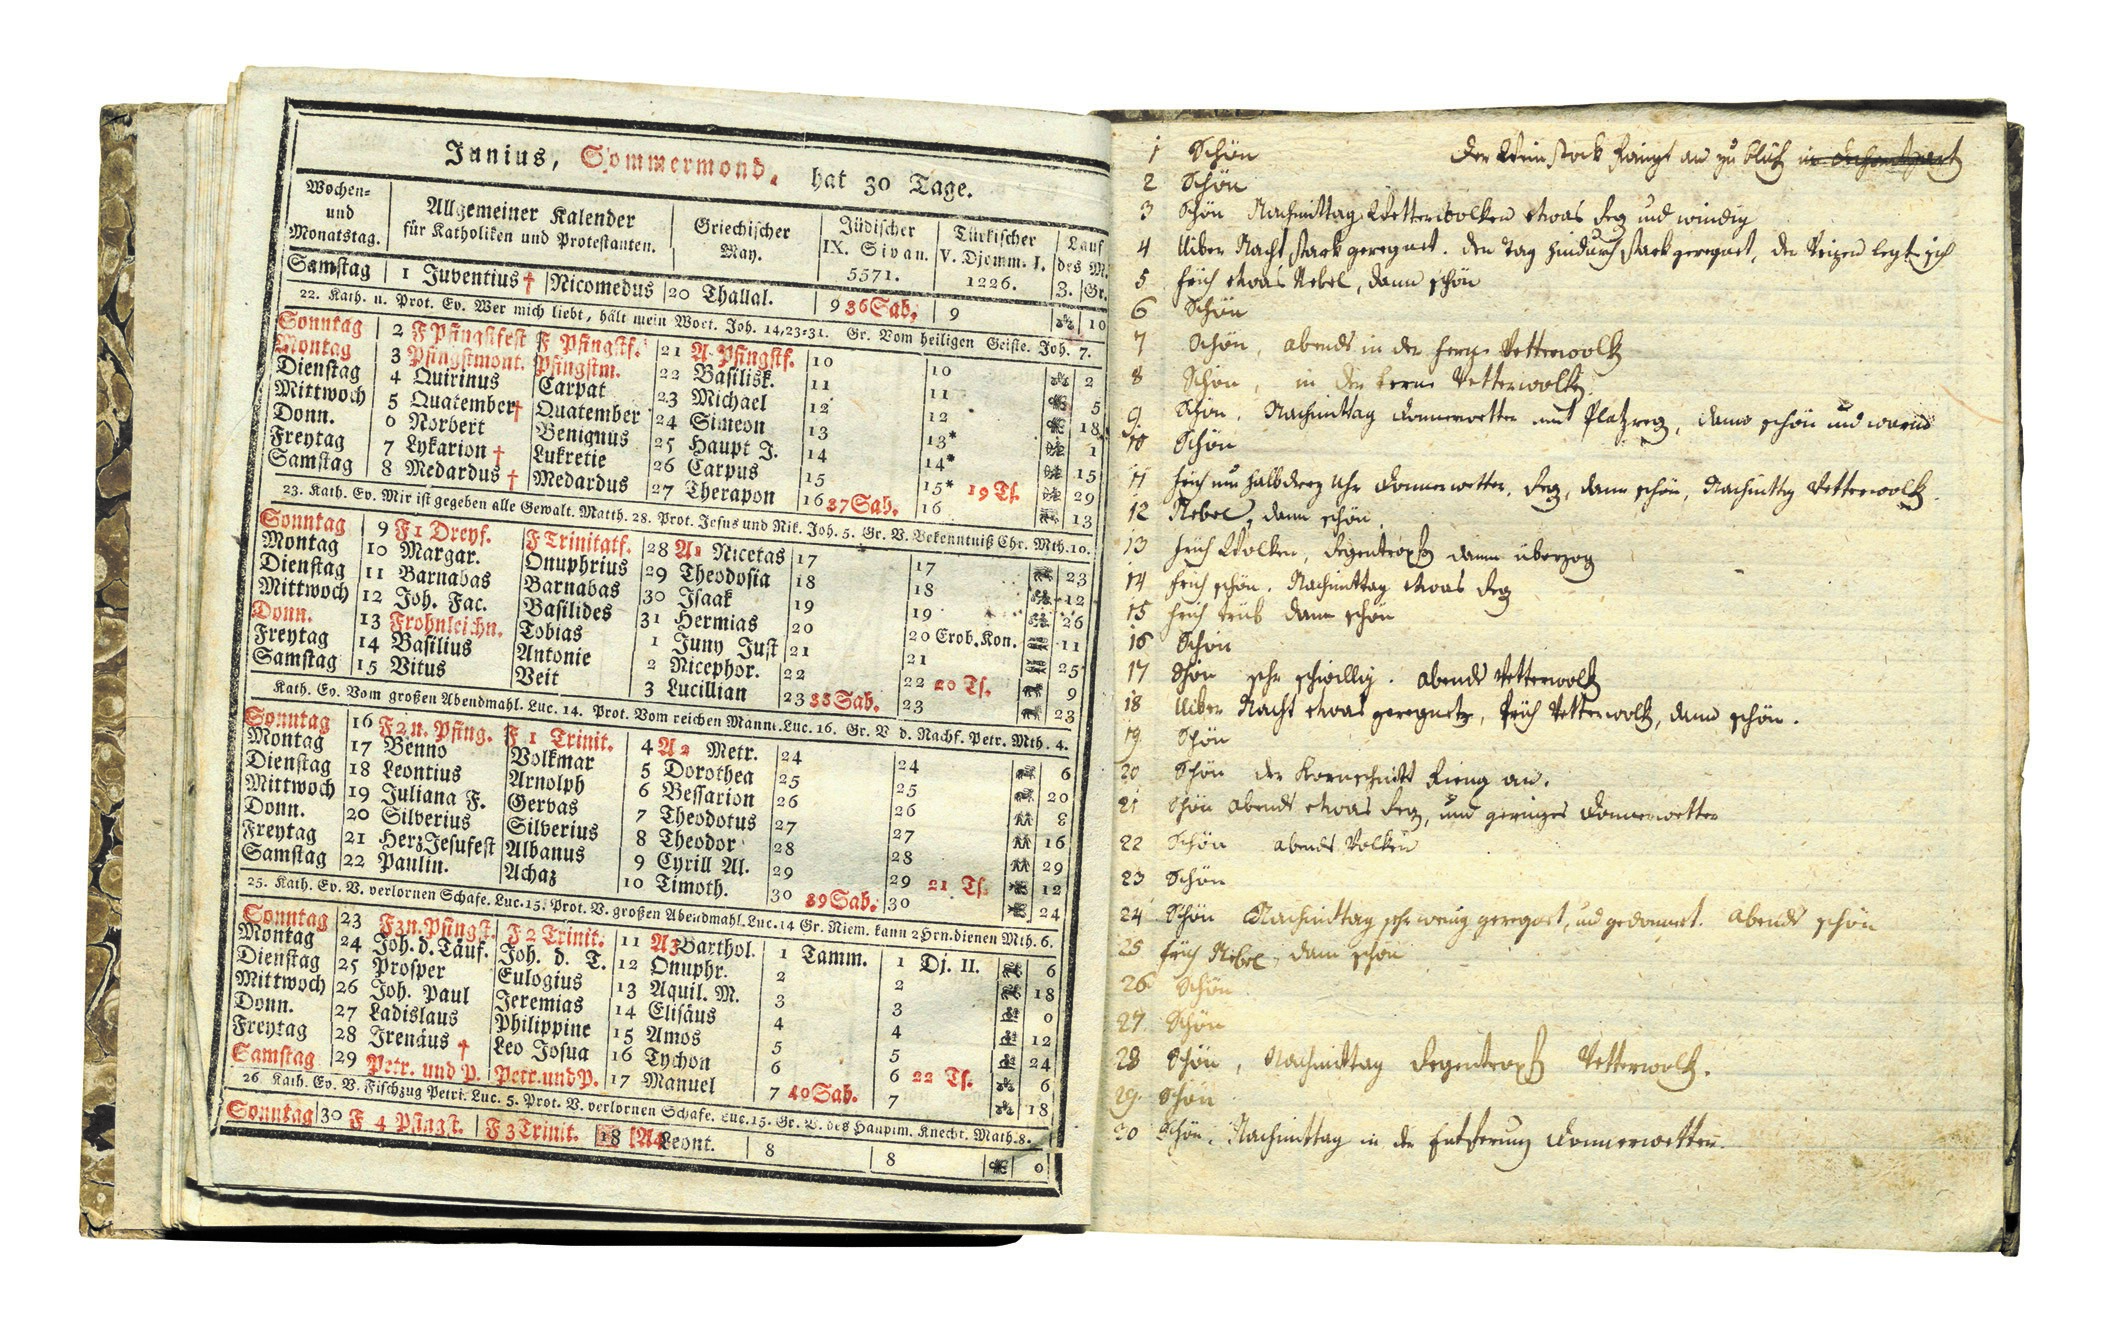 Junius, Sommermond, hat 30 Tage.
Wochen- und Monatstag. Allgemeiner Kalender für Katholiken und Protestanten. Griechischer May. Jüdischer IX. Sivan. 5571. Türkischer V. Djemm. I. 1226. Lauf des M. 3. Gr.
Samstag 1 Juventius † Nicomedus 20 Thallal. 9 36 Sab. 9 10
22. Kath. u. Prot. Ev. Wer mich liebt, hält mein Wort. Joh. 14,23-31. Gr. Vom heiligen Geiste. Joh. 7.
Sonntag 2 F Pfingstfest F Pfingstf. 21 A. Pfingstf. 10 10 2
Montag 3 Pfingstmont. Pfingstm. 22 Basilisk. 11 11 5
Dienstag 4 Quirinus Carpat 23 Michael 12 12 18
Mittwoch 5 Quatember † Quatember 24 Simeon 13 13* 1
Donn. 6 Norbert Benignus 25 Haupt J. 14 14* 15
Freytag 7 Lykarion † Lukretie 26 Carpus 15 15* 19 Tf. 29
Samstag 8 Medardus † Medardus 27 Therapon 16 37 Sab. 16 13
23. Kath. Ev. Mir ist gegeben alle Gewalt. Matth. 28. Prot. Jesus und Nik. Joh. 5. Gr. V. Bekenntniß Chr. Mth. 10.
Sonntag 9 F 1 Dreyf. F Trinitatf. 28 A 1 Nicetas 17 17 23
Montag 10 Margar. Onuphrius 29 Theodosia 18 18 12
Dienstag 11 Barnabas Barnabas 30 Isaak 19 19 26
Mittwoch 12 Joh. Fac. Basilides 31 Hermias 20 20 Erob. Kon. 11
Donn. 13 Frohnleichn. Tobias 1 Juny Just 21 21 25
Freytag 14 Basilius Antonie 2 Nicephor. 22 22 20 Tf. 9
Samstag 15 Vitus Veit 3 Lucillian 23 38 Sab. 23 23
Kath. Ev. Vom großen Abendmahl. Luc. 14. Prot. Vom reichen Mann. Luc. 16. Gr. V d. Nachf. Petr. Mth. 4.
Sonntag 16 F 2 n. Pfing. F 1 Trinit. 4 A 2 Metr. 24 24 6
Montag 17 Benno Volkmar 5 Dorothea 25 25 20
Dienstag 18 Leontius Arnolph 6 Bessarion 26 26 3
Mittwoch 19 Juliana F. Gervas 7 Theodotus 27 27 16
Donn. 20 Silverius Silverius 8 Theodor 28 28 29
Freytag 21 Herz Jesufest Albanus 9 Cyrill Al. 29 29 21 Tf. 12
Samstag 22 Paulin. Achaz 10 Timoth. 30 39 Sab. 30 24
25. Kath. Ev. V. verlornen Schafe. Luc. 15. Prot. V. großen Abendmahl. Luc. 14 Gr. Niem. kann 2 Hrn. dienen Mth. 6.
Sonntag 23 F 3 n. Pfingst. F 2 Trinit. 11 A 3 Barthol. 1 Tamm. 1 Dj. II. 6
Montag 24 Joh. d. Täuf. Joh. d. T. 12 Onuphr. 2 2 18
Dienstag 25 Prosper Eulogius 13 Aquil. M. 3 3 0
Mittwoch 26 Joh. Paul Jeremias 14 Elisäus 4 4 12
Donn. 27 Ladislaus Philippine 15 Amos 5 5 24
Freytag 28 Irenäus † Leo Josua 16 Tychon 6 6 22 Tf. 6
Samstag 29 Petr. und P. Petr. und P. 17 Manuel 7 40 Sab. 7 18
26. Kath. Ev. V. Fischzug Petri. Luc. 5. Prot. V. verlornen Schafe. Luc. 15. Gr. V. des Hauptm. Knecht. Math. 8.
Sonntag 30 F 4 Pfingst. F 3 Trinit. 18 A 4 Leont. 8 8 0
1 Schön Der Weinstock fangt an zu blüh
2 Schön
3 Schön Nachmittag Wetterwolken etwas Reg und windig
4 Uiber Nacht stark geregnet. den Tag hindurch stark geregnet, der Weizen legt sich
5 früh etwas Nebel, dann schön
6 Schön
7 Schön, abends in der Ferne Wetterwolk
8 Schön, in der Ferne Wetterwolk
9 Schön. Nachmittag Donnerwetter mit Platzreg, dann schön und warm
10 Schön
11 früh um halb drey Uhr Donnerwetter, Reg, dann schön, Nachmittg Wetterwolk.
12 Nebel, dann schön
13 früh Wolken, Regentropf dann überzog
14 früh schön. Nachmittag etwas Reg
15 früh trüb dann schön
16 Schön
17 Schön sehr schwillig. abends Wetterwolk
18 Uiber Nacht etwas geregnet, früh Wetterwolk, dann schön.
19 Schön
20 Schön der Kornschnitt fieng an.
21 Schön abends etwas Reg, und geringes Donnerwetter
22 Schön abends Wolken
23 Schön
24 Schön Nachmittag sehr wenig geregnet, und gedonnert. abends schön
25 früh Nebel, dann schön
26 Schön
27 Schön
28 Schön, Nachmittag Regentropf Wetterwolk.
29. Schön
30 Schön. Nachmittag in der Entfernung Donnerwetter.